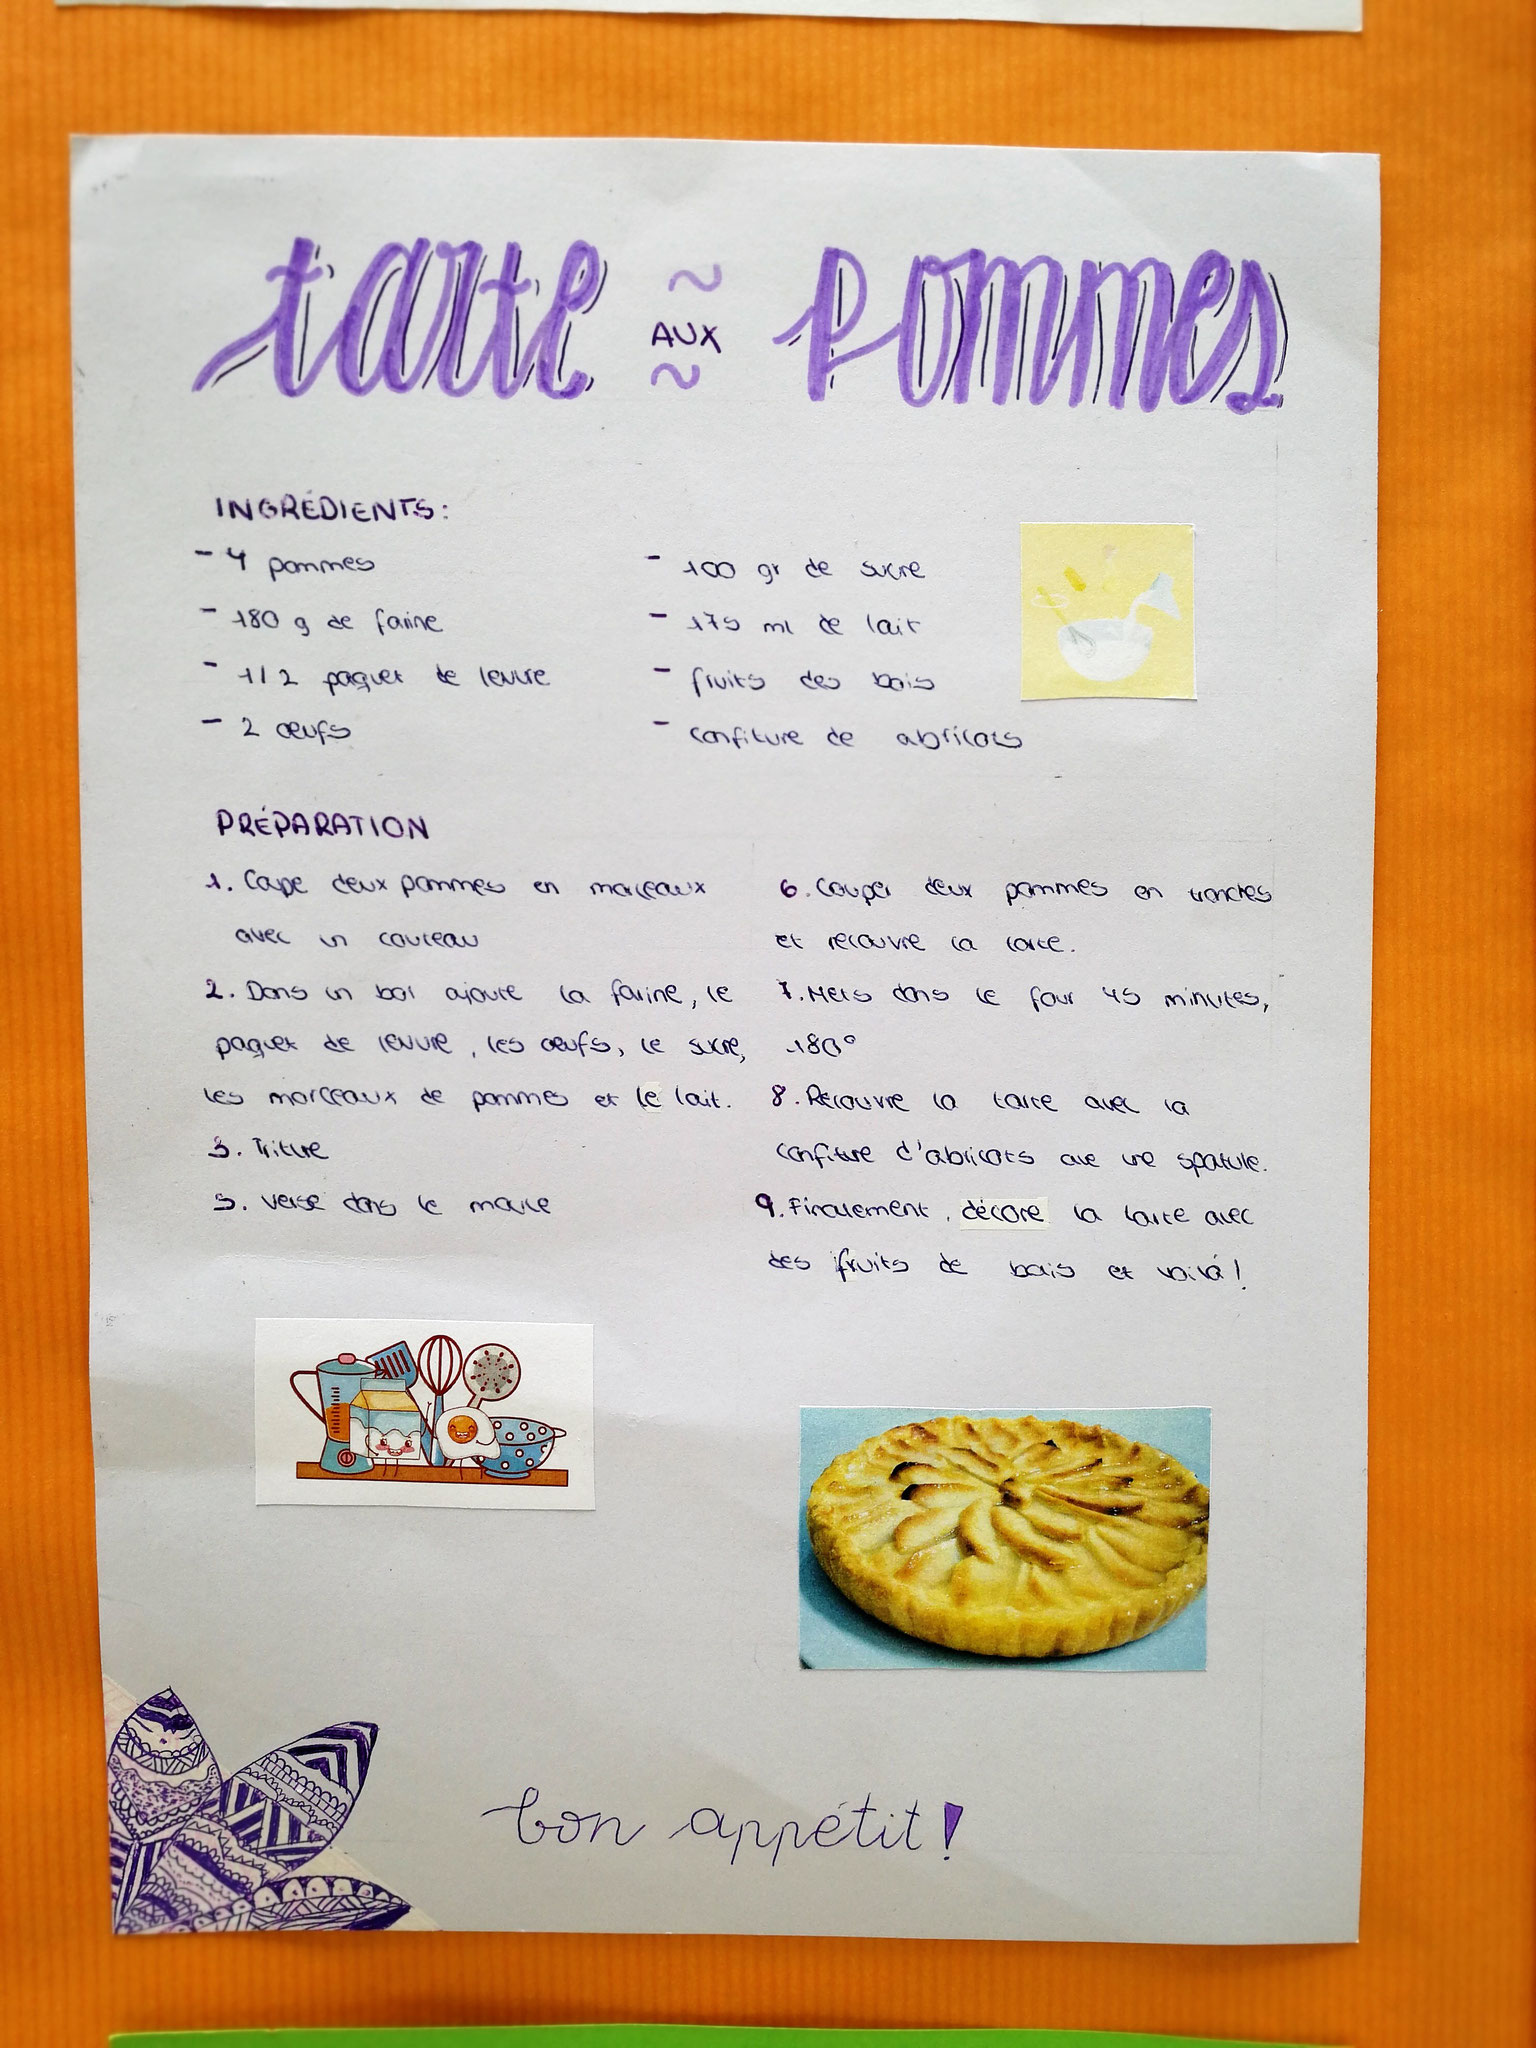 tarte
~
AUX
~
Pommes
INGRÉDIENTS:
- 4 pommes
- 180 g de farine
- 1/2 paquet de levure
- 2 œufs
- 100 gr de sucre
- 175 ml de lait
- fruits des bois
- confiture de abricots
PRÉPARATION
1. Coupe deux pommes en morceaux
avec un couteau
2. Dans un bol ajoute la farine, le
paquet de levure, les œufs, le sucre,
les morceaux de pommes et le lait.
3. Triture
5. Verse dans le moule
6. Couper deux pommes en tranches
et recouvre la tarte.
7. Mets dans le four 45 minutes,
180°
8. Recouvre la tarte avec la
confiture d'abricots ave une spatule.
9. Finalement, décore la tarte avec
des fruits de bois et voilá!
bon appétit!